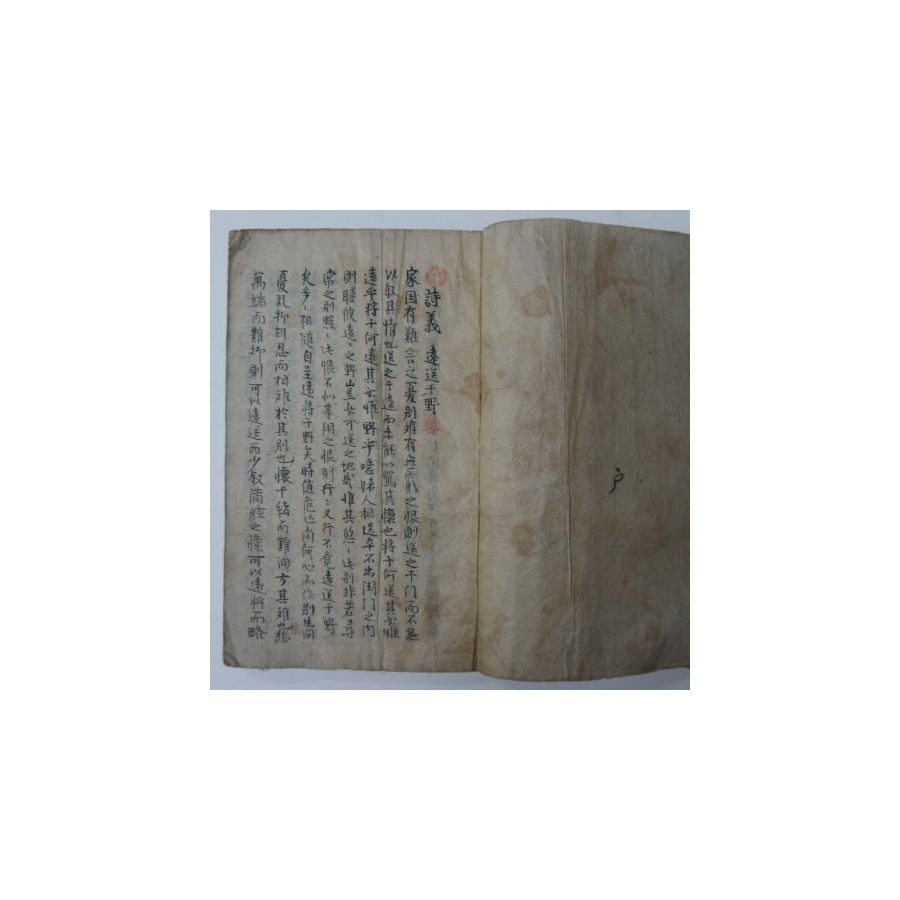 詩義 遠送于野
家国有難言之憂別離有無形之恨則送之于门而不足
以叙其情也送之于遠而未能以寫其懷也將于何送其必惟
遠乎將于何遠其必惟野乎噫婦人相送本不出閨门之内
則瞻彼遠〻之野豈是可送之地哉惟其悠〻此別非若尋
常之別黯〻此恨不如等閒之恨則行〻又行不竟遠送于野
矣步〻相随自至遠將于野矣時值危亡尚何心而作別生
憂乱抑胡忍而相離於其別也懷千緒而難消方其離也愁
萬端而難抑則可以遠送而少叙滿腔之懷可以遠將而略
户